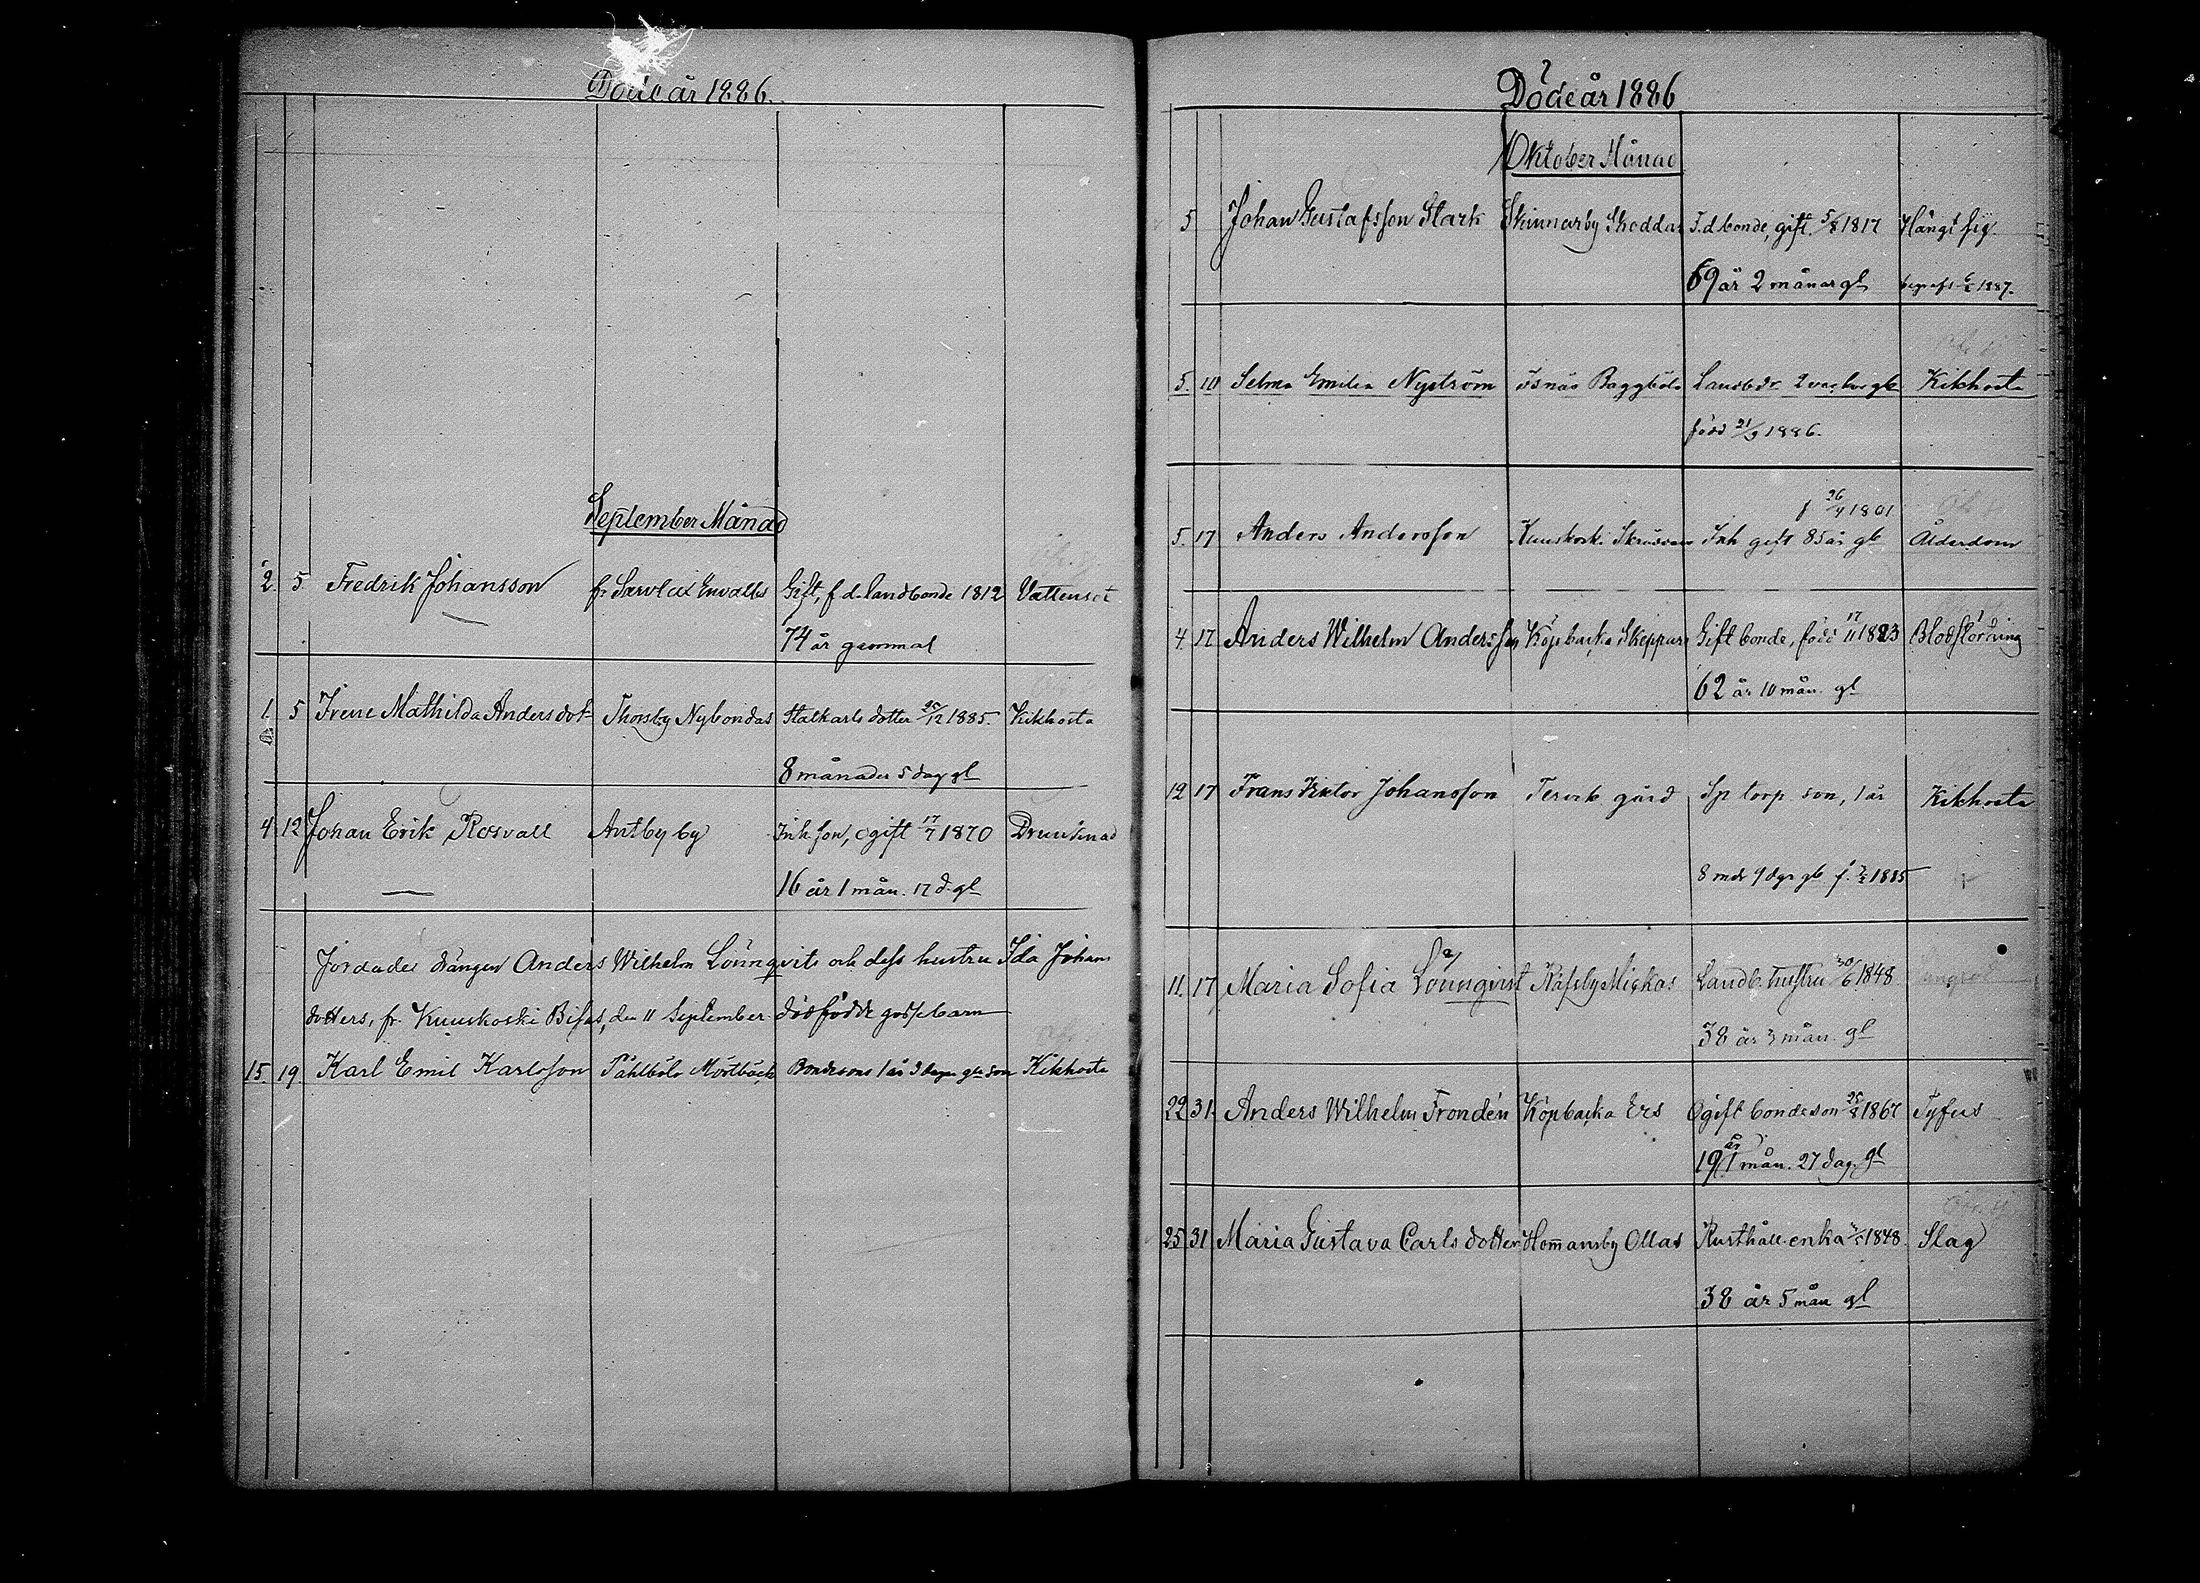 Döde år 1886.
September Månad
2. 5 Fredrik Johansson fr Sarvlax Envalls Gift, f d. landbonde 1812 Vattensot
74 år gammal
1. 5 Irene Mathilda Andersdotr Thorsby Nybondas Stalkarls dotter 25/12 1885. Kikhosta
8 månader 5 dag gl
4 12 Johan Erik Rosvall Antby by Inh son, ogift 17/7 1870 Drunknad
16 år 1 mån. 17 d. gl
Jordades drängen Anders Wilhelm Lönnqvists och dess hustru Ida Johans
dotters, fr. Kuuskoski Bisas, den 11 September dödfödde gossebarn
15. 19. Karl Emil Karlsson Påhlböle Mörtbäck Bondesons 1 år 3 dagar gle son Kikhosta
Döde år 1886
Oktober Månad
5 Johan Gustafsson Stark Skinnarby Skoddas F.d bonde, gift. 5/8 1817 Hängt sig.
69 år 2 månar gl begrafs 1887.
5. 10 Selma Emilia Nyström Isnäs Baggböle Landbdr 2 veckor gl Kikhosta
född 21/9 1886.
f 26/4 1801
5. 17 Anders Andersson Kuuskoski Inh gift 85 år gl Ålderdom
4. 17 Anders Wilhelm Andersson Köpbacka Skeppars Gift bonde, född 17/11 1823 Blodstörtning
62 år 10 mån. gl
12 17 Frans Viktor Johansson Tervik gård Sp torp. son, 1 år Kikhosta
8 mdr 9 dgr gl f. 1885
11. 17 Maria Sofia Lönnqvist Räfsby Mickas Landb. hustru 30/6 1848
38 år 3 mån. gl
22 31. Anders Wilhelm Frondén Köpbacka Ers Ogift bondeson 25/8 1867 Tyfus
19 år 1 mån. 27 dag. gl
25 31 Maria Gustava Carlsdotter Hommansby Ollas Rusthåll. enka 1848. Slag
38 år 5 mån gl